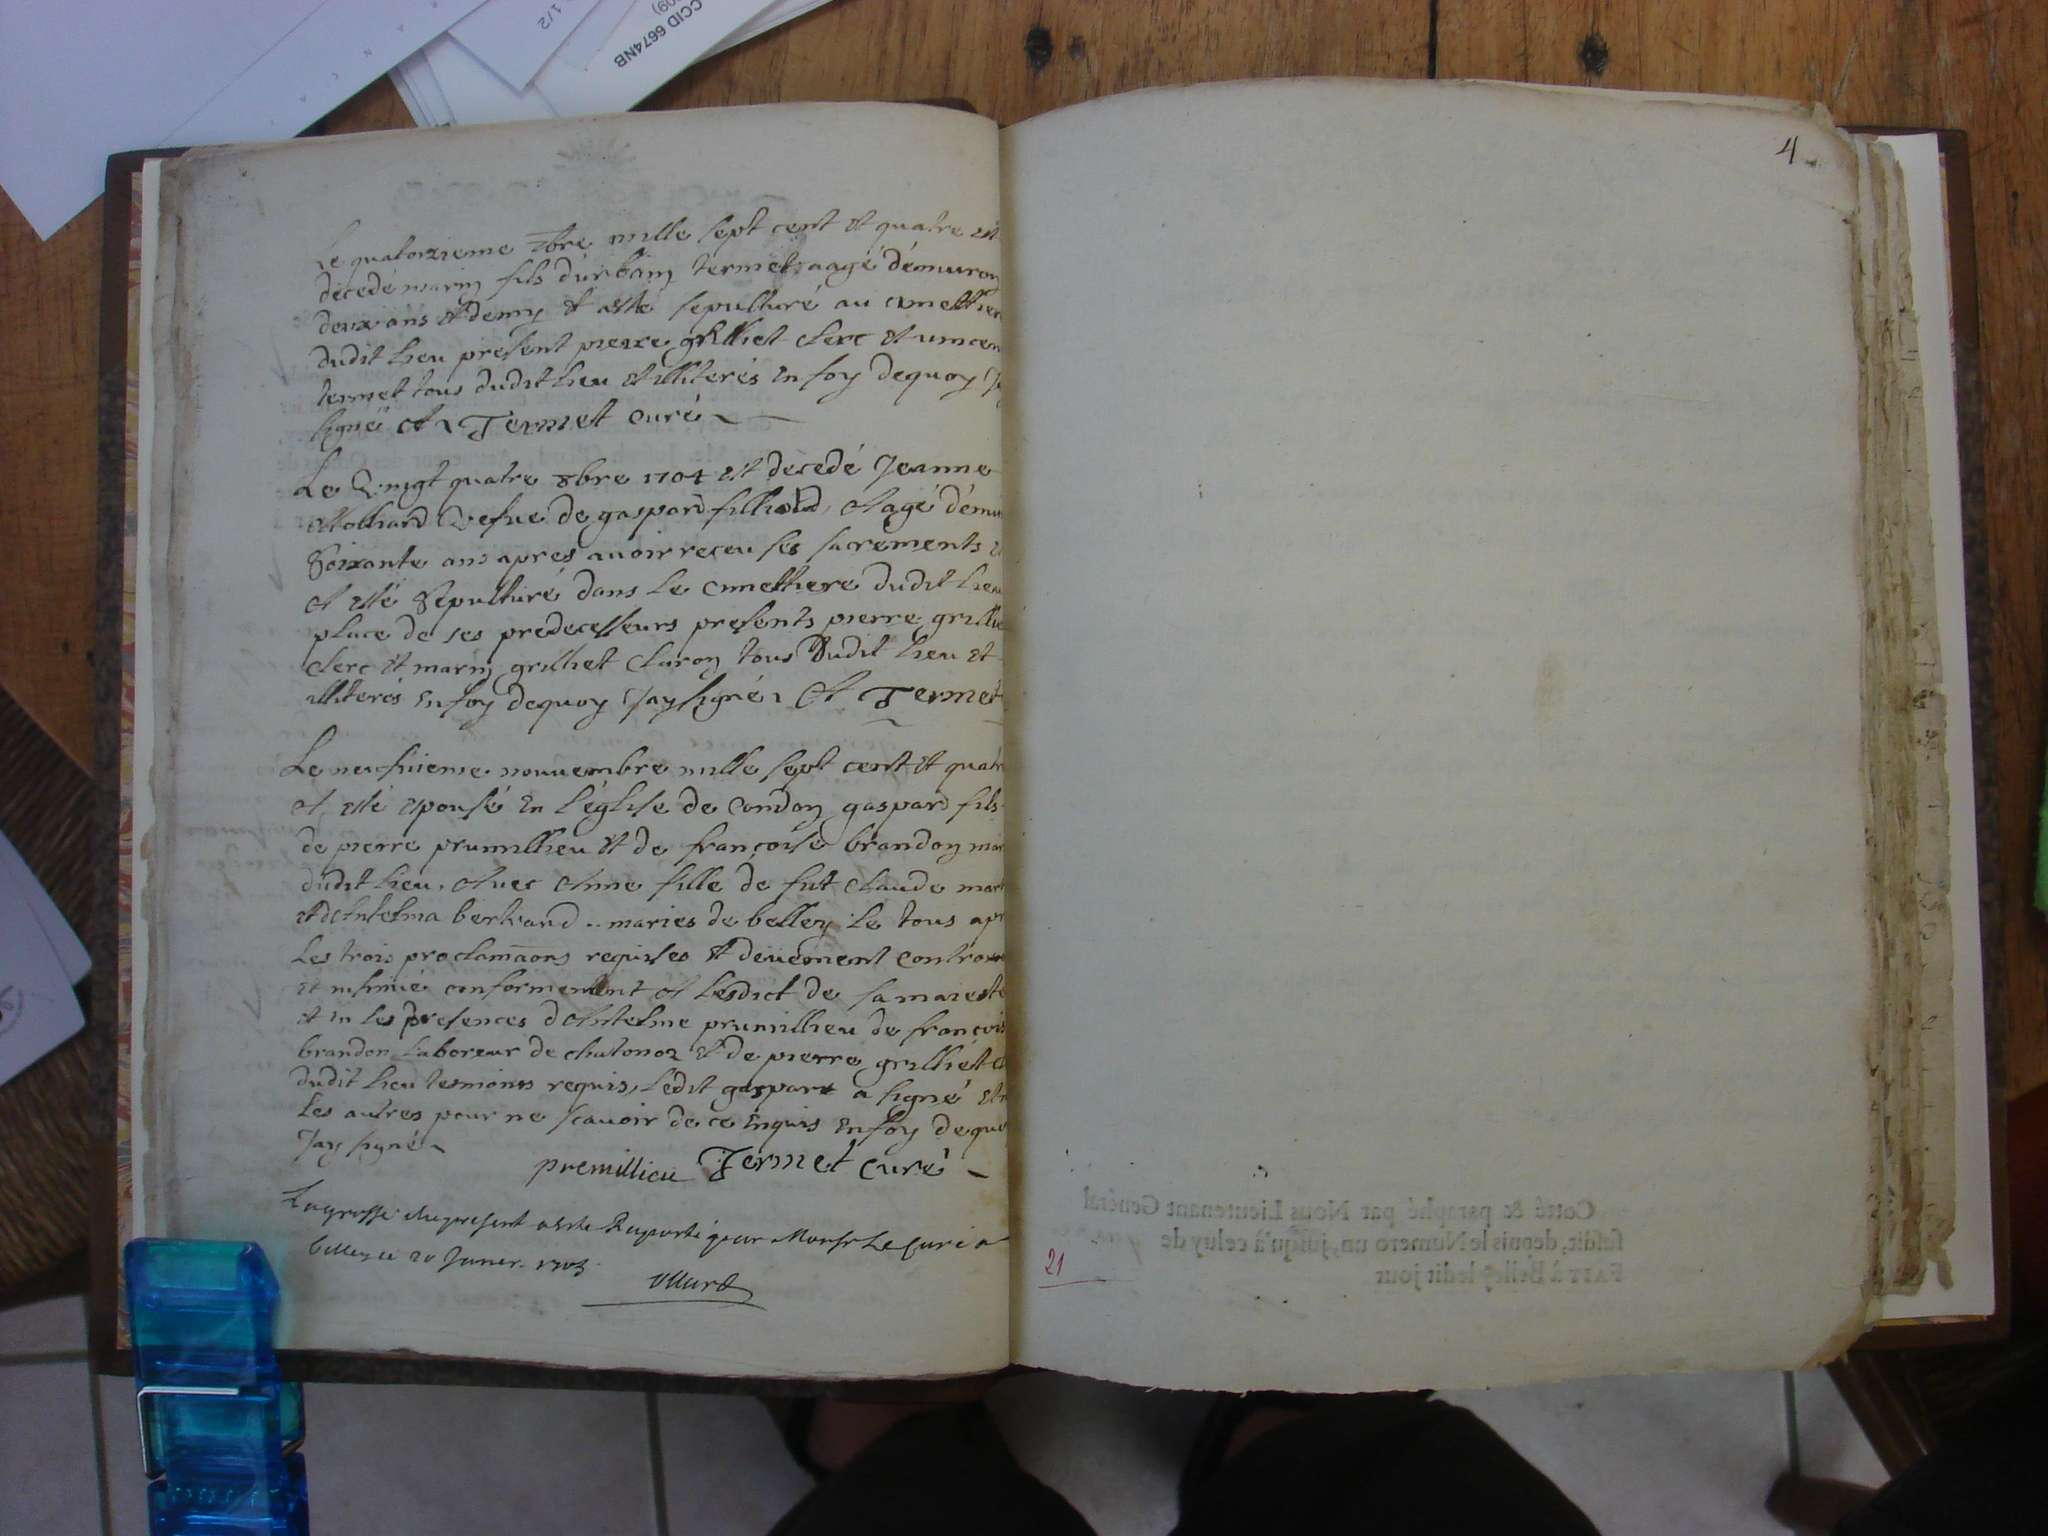 CCID 6674NB
1/2
Le quatorzieme 7bre mille sept cent et quatre est
decedé marin fils d'urbain termet aagé d'émuron
deux ans et demy et a esté sepulturé au cimettier
dudit lieu present pierre grilliet clerc et vincen
termet tous dudit lieu et illiterés en foy dequoy J'ay
signé A Termet curé
Le vingt quatre 8bre 1704 est decedé Jeanne
Molliard vefue de gaspard filliold, et agé d'émur
soixante ans apres auoir receu ses sacrements et
A esté sepulturé dans le cimettiere dudit lieu
place de ses predecesseurs presents pierre grillie
clerc et marin grilliet claron tous dudit lieu et
illiterés en foy dequoy J'ay signé A Termet
Le neufuieme nouuembre mille sept cent et quatre
A esté epousé en l'église de Condon gaspard fils
de pierre prumillieu et de françoise brandon mar
dudit lieu, Auec Anne fille de fut Claude mart
et d'Antelma bertrand maries de belley le tous apr
les trois proclamaons requises et deüement controu
et insinué conformement A l'esdict de sa maiesté
et en les presences d'Antelme prumillieu de françois
brandon laboreur de chutonoz et de pierre grilliet cl
dudit lieu tesmoins requis, ledit gaspart a signé et n
les autres pour ne scauoir de ce enquis en foy de quo
J'ay signé
premillieu Termet curé
La grosse du present a esté Raporté par Monsr Le Curé a
belley le 20 Janvier 1705
4
Cotté & paraphé par Nous Lieutenant General
susdit, depuis le Numero un, jusqu'à celuy de
FAIT à Belley ledit jour
21